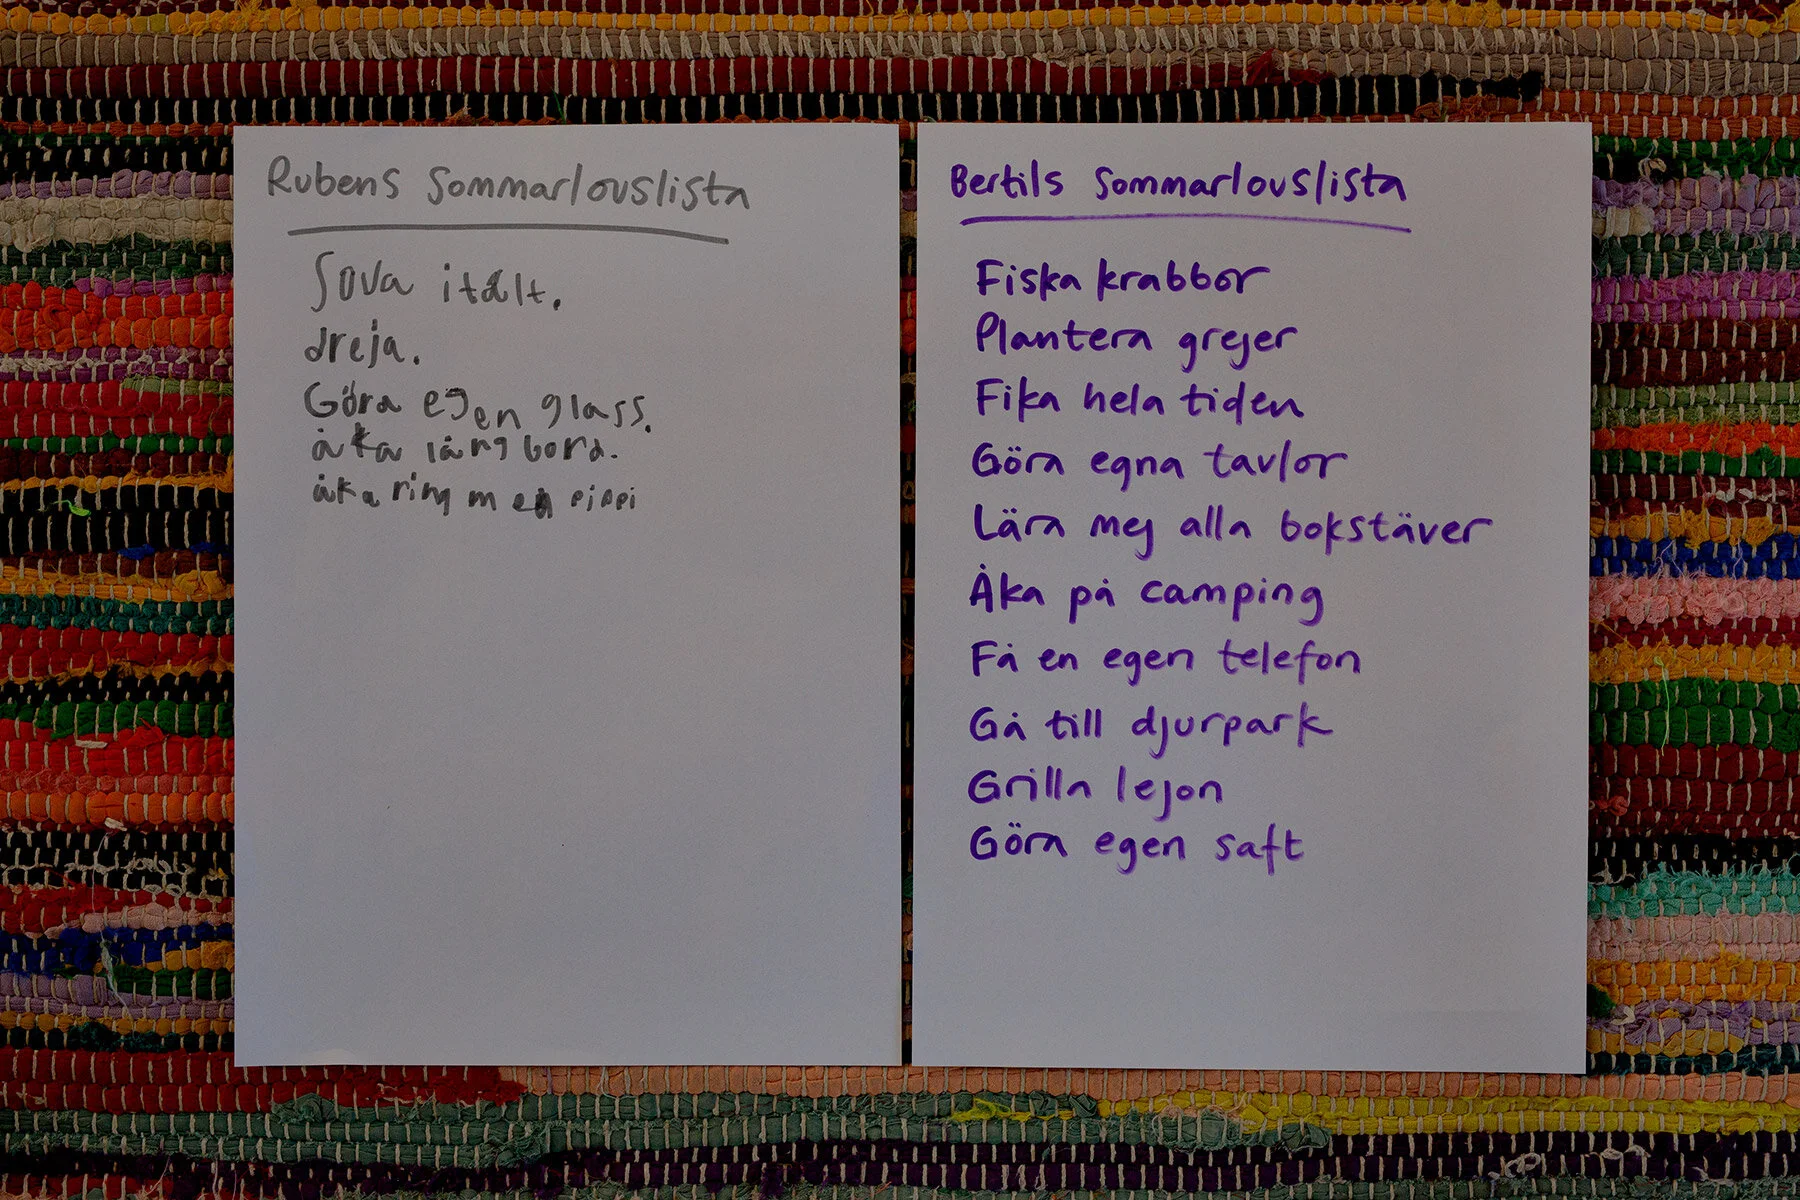 Rubens Sommarlovslista
Sova i tält.
dreja.
Göra egen glass.
åka långbord.
åka ring men pippi
Bertils Sommarlovslista
Fiska krabbor
Plantera grejer
Fika hela tiden
Göra egna tavlor
Lära mej alla bokstäver
Åka på camping
Få en egen telefon
Gå till djurpark
Grilla lejon
Göra egen saft